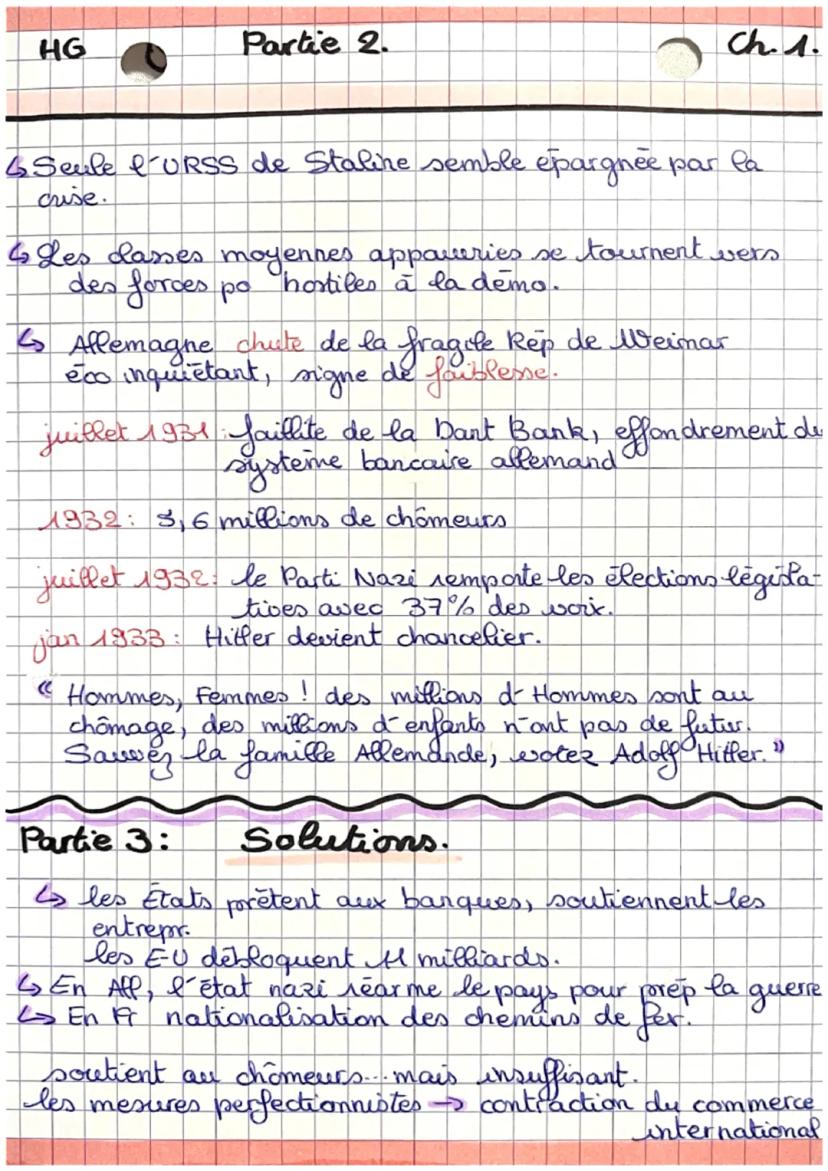 HG Partie 2. Ch. 1.
↳ Seule l'URSS de Staline semble épargnée par la
crise.
↳ Les classes moyennes appauvries se tournent vers
des forces po hostiles à la démo.
↳ Allemagne chute de la fragile Rép de Weimar
éco inquiétant, signe de faiblesse.
juillet 1931 : faillite de la Dant Bank, effondrement du
système bancaire allemand
1932 : 5,6 millions de chômeurs
juillet 1932 : le Parti Nazi remporte les élections législa-
tives avec 37% des voix.
jan 1933 : Hitler devient chancelier.
« Hommes, Femmes ! des millions d'Hommes sont au
chômage, des millions d'enfants n'ont pas de futur.
Sauvez la famille Allemande, votez Adolf Hitler. »
Partie 3 : Solutions.
↳ les États prêtent aux banques, soutiennent les
entrepr.
les E-U débloquent 11 milliards.
↳ En All, l'état nazi réarme le pays pour prép la guerre
↳ En Fr nationalisation des chemins de fer.
soutient au chômeurs... mais insuffisant.
les mesures perfectionnistes → contraction du commerce
international